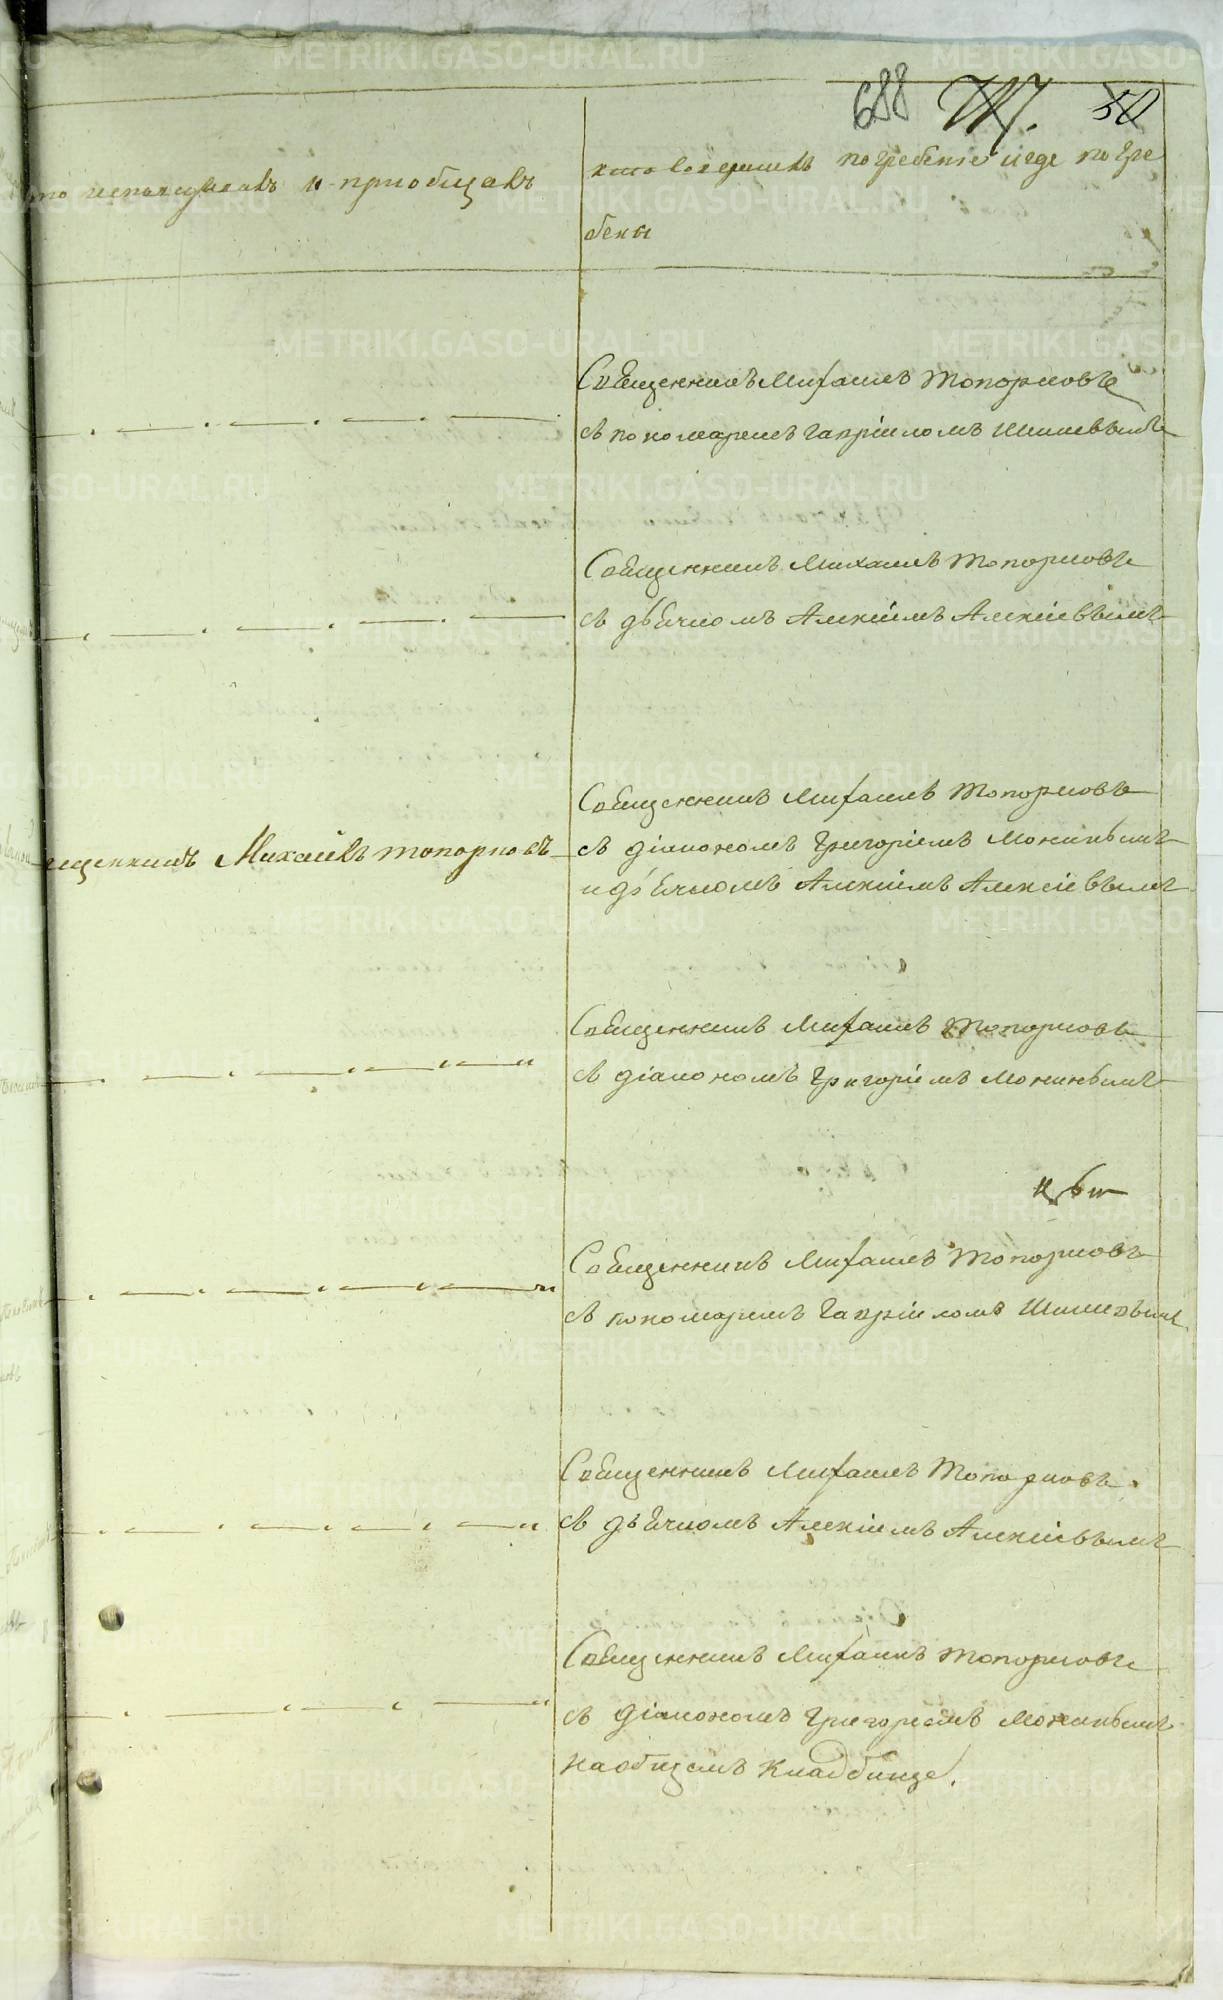 688 50
кто исповедывалъ и приобщалъ
кто совершилъ погребение и где погре
бены
Священникъ Михаилъ Топорковъ
съ пономаремъ Гавріиломъ Шишевымъ
Священникъ Михаилъ Топорковъ
съ дьячкомъ Алексіемъ Алексіевымъ
Священникъ Михаилъ Топорковъ
ященникъ Михаилъ Топорковъ
съ діакономъ Григоріемъ Мокинымъ
и дьячкомъ Алексіемъ Алексіевымъ
Священникъ Михаилъ Топорковъ
съ діакономъ Григоріемъ Мокинымъ
Священникъ Михаилъ Топорковъ
съ пономаремъ Гавріиломъ Шишевымъ
Священникъ Михаилъ Топорковъ
съ дьячкомъ Алексіемъ Алексіевымъ
Священникъ Михаилъ Топорковъ
съ діакономъ Григоріемъ Мокинымъ
на общемъ кладбище.
METRIKI.GASO-URAL.RU